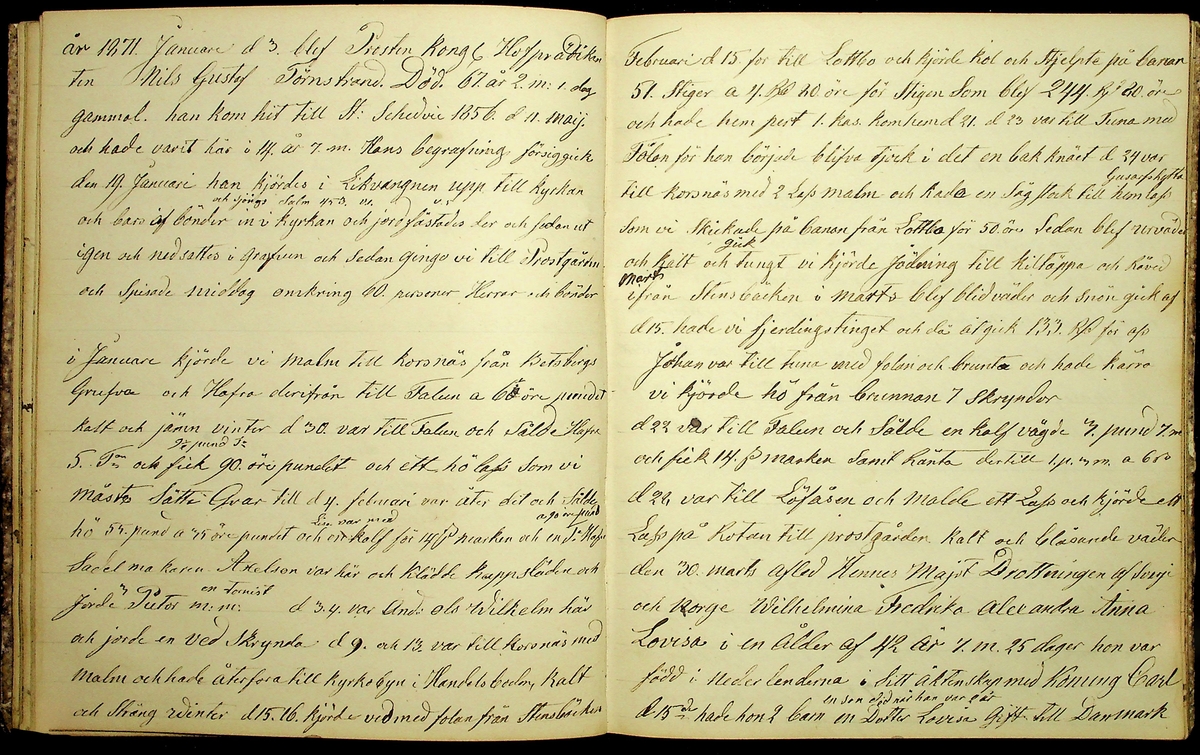 år 1871. Januari d 3. blef Prosten Kongl Hofprädikan
ten Nils Gustaf Törnstrand. Död. 67. år 2. m: 1. dag
gammal. han kom hit till St: Schedvie 1856. d 11. maij.
och hade varit här i 14. år 7. m. Hans begrafning försiggick
den 19. Januari han kjördes i Likvangnen upp till kyrkan
och sjöngs Salm 453.
och bars af bönder in i kyrkan och jordfästades der och sedan ut
igen och nedsattes i Grafven och Sedan gingo vi till Prostgården
och Spisade middag omkring 60. personer Herrar och bönder
i Januari kjörde vi malm till Korsnäs från Betsbergs
Grufva och Hafra derifrån till Falun a 6 öre pundet
kalt och jämn vinter d 30. var till Falun och Sålde Hafra
pund Tn
5. Tn och fick 90. öre pundet och ett hö lass som vi
måste Sätta Qvar till d 4. februari var åter dit och Sålde
a 90 öre pund
hö 55. pund a 45 öre pundet och en kalf för 14 marken och en Tn Hafr
var med
Sadelmakaren Axelson var här och klädde kappsläden och
en Tornist
jorde 3 Putor m: m: d 3. 4. var And: ols Wilhelm här
och jorde en ved Skrynda d 9. och 13. var till Korsnäs med
malm och hade återfora till kyrkobyn i Handelsboden, kalt
och Sträng Winter d 15. 16. kjörde ved med folan från Stensbäcken
Februari d 15. for till Lottbo och kjörde kol och Hjelpte på banan
51. Stiger a 4. 80 öre för Stigen Som blef 244. 80 öre
och hade hem pert 1. kas. kom hem d 21. d 23 var till Tuna med
Fölan för han började blifva tjock i det en bak knäet d 24 var
Gusafshytta
till Korsnäs med 2 Lass malm och hade en Såg stock till hemlass
Som vi Skickade på banan från Lottbo för 50. öre Sedan blef urväder
gick
och kalt och tungt vi kjörde Jödning till kiltäppa och höved
Marts
ifrån Stensbäcken i marts blef blidväder och snön gick af
d 15. hade vi fjerdingstinget och då åtgick 133. för oss
Johan var till tuna med folan och brunta och hade kärra
vi kjörde hö från brunnan 7 Skryndor
d 22 var till Falun och Sålde en kalf vägde 3. pund 7. m
och fick 14. marken Samt hänta dertill
d 22 var till Löfåsen och malde ett Lass och kjörde ett
Lass på Rotan till prostgården kalt och blåsande väder
den 30. marts afled Hennes Majst Drottningen af Sverje
och Norge Wilhelmina Fredrika Alexandra Anna
Lovisa i en ålder af 42 år 7. m. 25 dagar hon var
född i Nederlenderna i Sitt äktenskap med konung Carl
en son död när han var 2 år
d 15de hade hon 2 barn en Dotter Lovisa Gift till Danmark